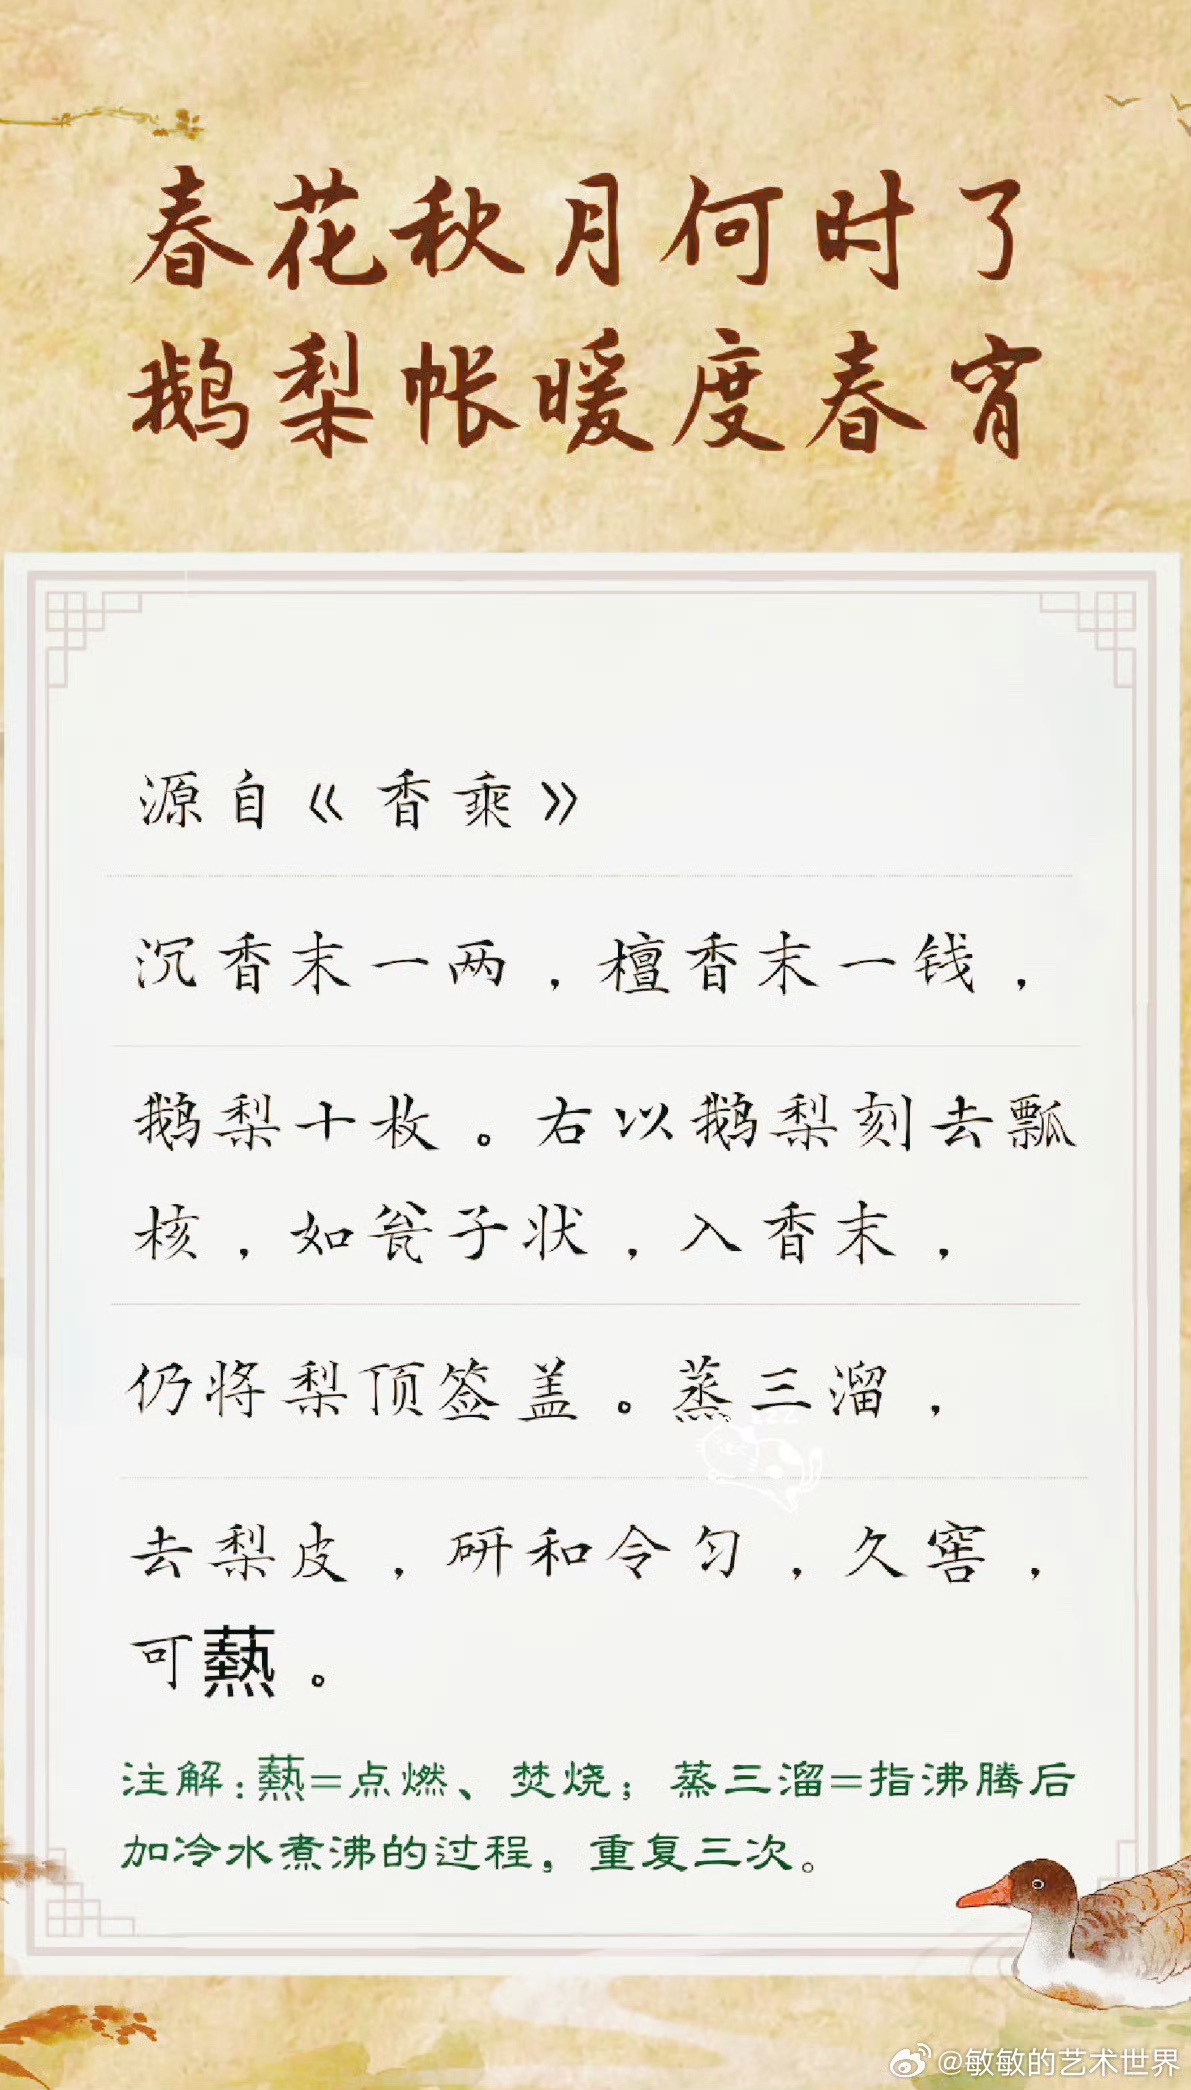 春花秋月何时了
鹅梨帐暖度春宵
源自《香乘》
沉香末一两，檀香末一钱，
鹅梨十枚。右以鹅梨刻去瓢
核，如瓮子状，入香末，
仍将梨顶签盖。蒸三溜，
去梨皮，研和令匀，久窨，
可爇。
注解:爇=点燃、焚烧；蒸三溜=指沸腾后
加冷水煮沸的过程，重复三次。
@敏敏的艺术世界